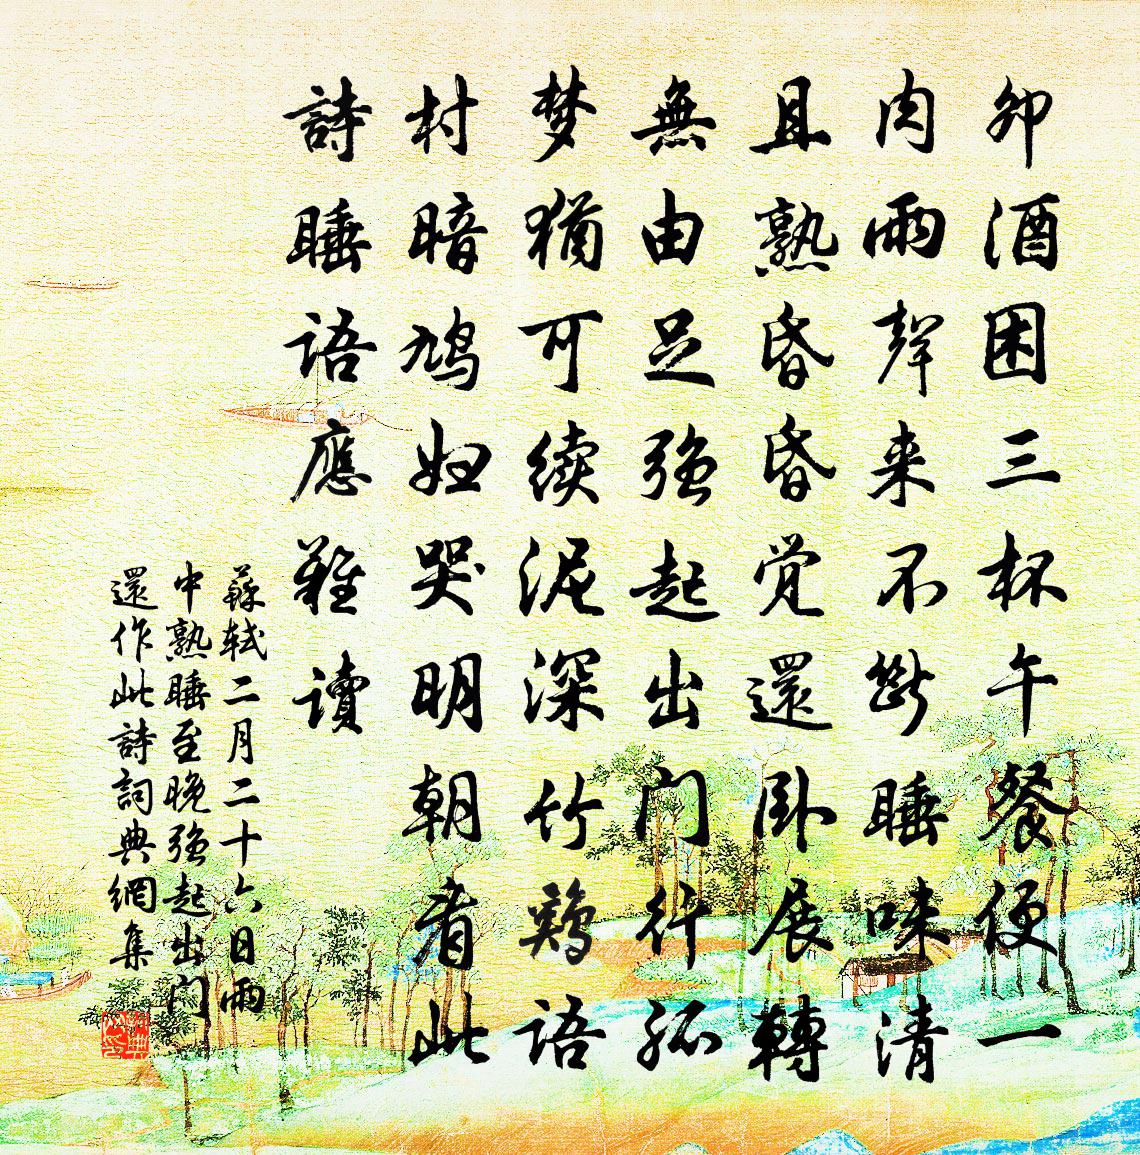 卯酒困三杯午餐便一
肉雨聲来不斷睡味清
且熟昏昏觉還卧展轉
無由足强起出门行孤
梦猶可续泥深竹鷄语
村暗鸠妇哭明朝看此
詩睡语應難讀
蘇轼二月二十六日雨
中熟睡至晚强起出门
還作此詩詞典網集